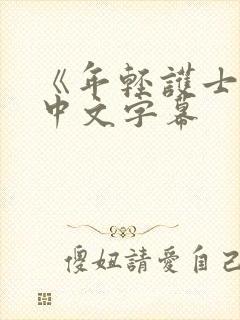 《年輕護士
中文字幕
傻妞請愛自己